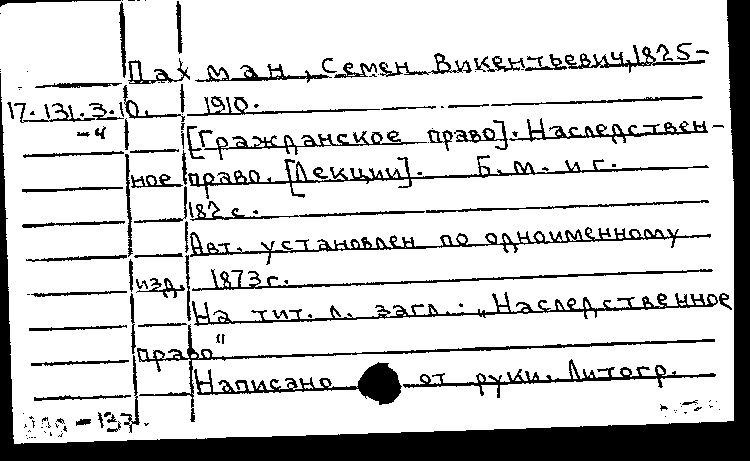 Пахман, Семен Викентьевич, 1825-
17.131.3.10. 1910.
-4
[Гражданское право]. Наследствен-
ное право. [Лекции]. Б. м. и г.
182 с.
Авт. установлен по одноименному
изд. 1873 г.
На тит. л. загл.: „Наследственное
право".
Написано от руки. Литогр.
-137.